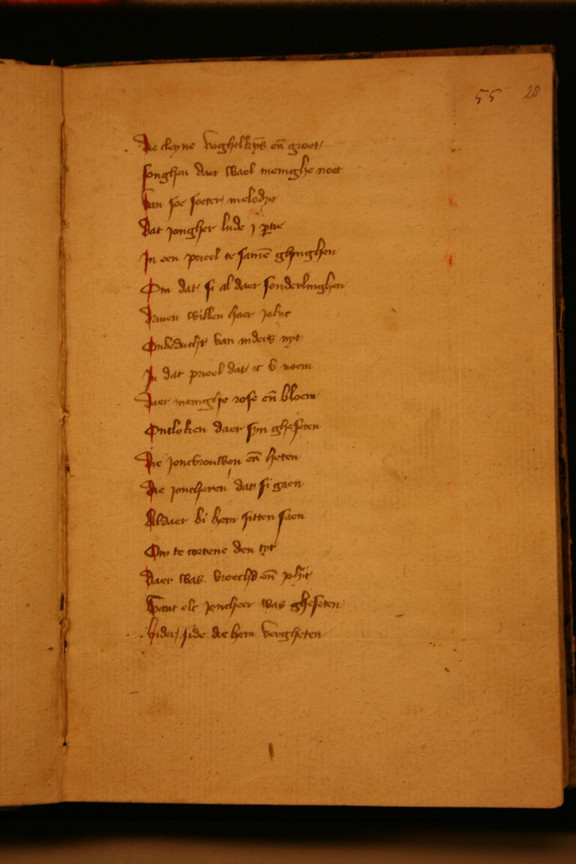 55 28
Die cleyne voghelkyns en̄ groet
songhen daer wael menighe noet
Van soe soeter melodye
Dat jongher lude j p̲tye
In een prieel te samē ghinghen
Om dat si al daer sonderlinghen
Jauen willen haer jolyt
Onbeducht van nyders nyt
In dat prieel dat ic v noem
Daer menighe rose en̄ bloem
Ontloken daer syn gheseten
Die joncvrouwen en̄ heten
Die joncheren dat si gaen
Aldaer bi hem sitten saen
Om te cortene den tyt
Daer was vroechd en̄ jolyt
Want elc joncheer was gheseten
side die hem vergheten